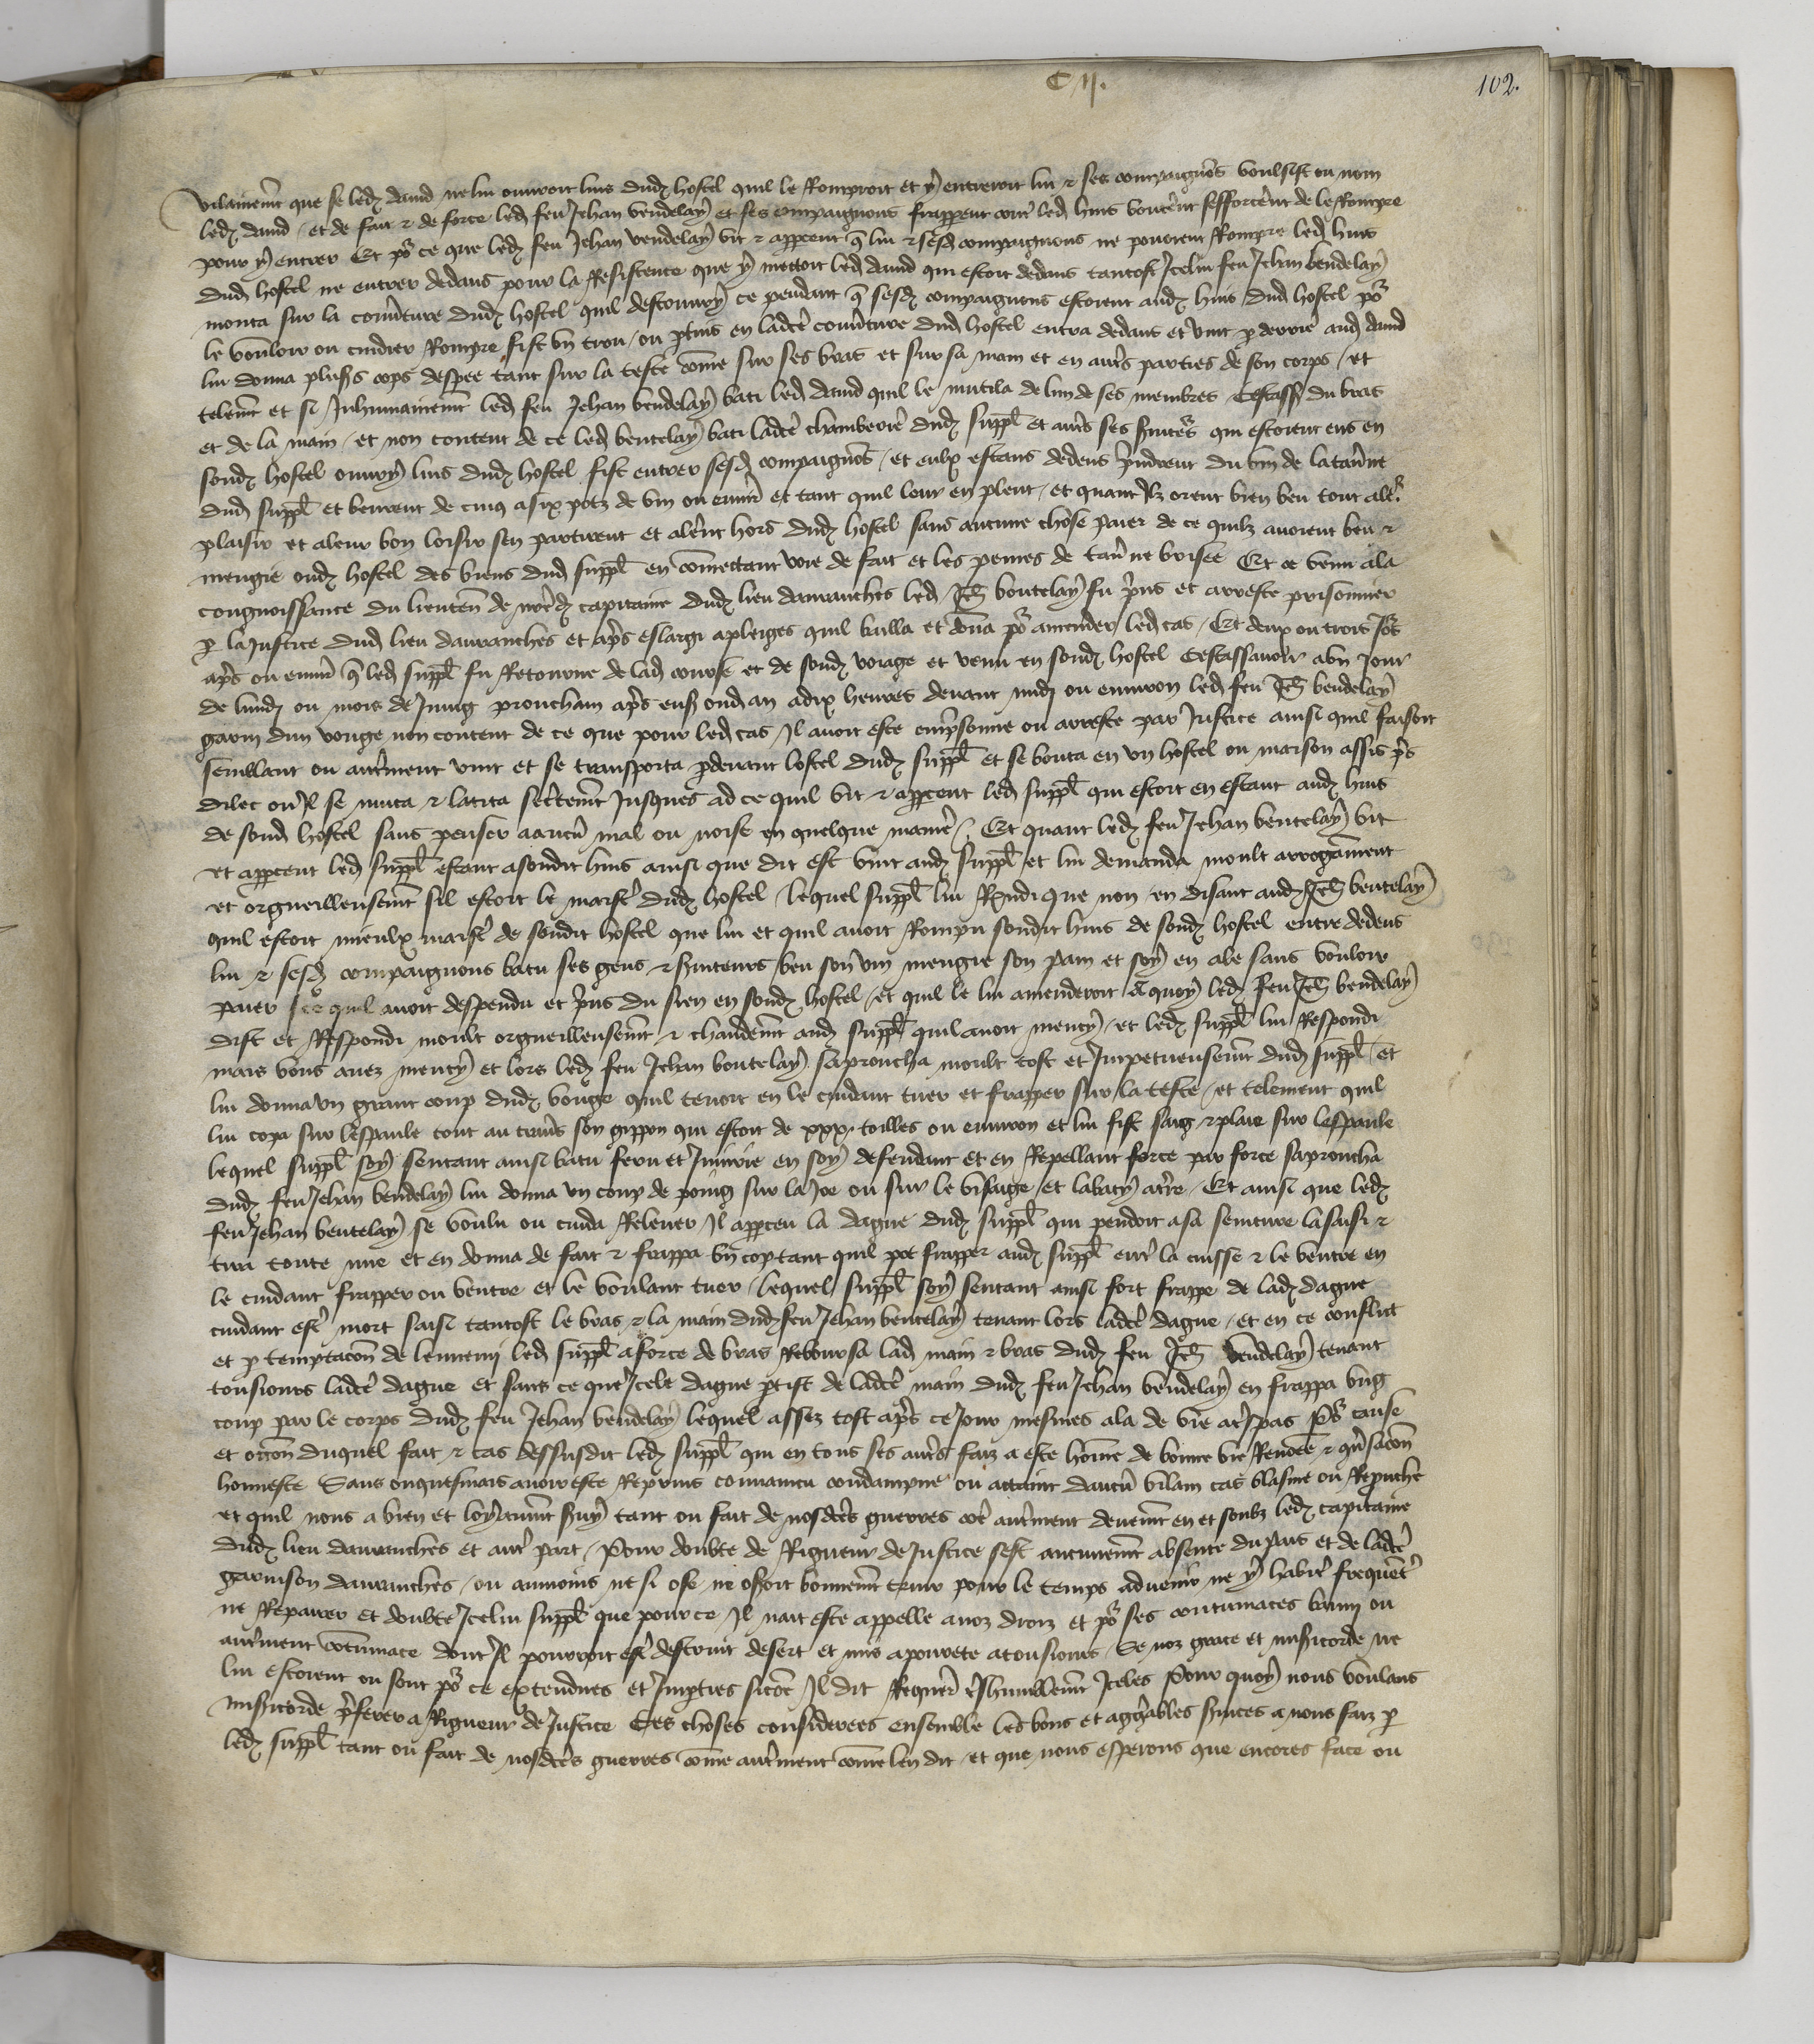 CII.
102.
vilainemẽt que se ledʒ dauid ne lui ouuroit luis dudʒ hostel quil le Romproit et yͥ entreroit lui ⁊ ses compaignõs voulsist ou non
ledʒ dauid / et de fait ⁊ de force ledʒ feu Jehan bendelayͥ et ses compaignons frapperent contͥ ledʒ huis boutẽrẽt sefforcẽrẽt de le Rompre
pour yͥ entrer Et poͬ ce que ledʒ feu Jehan bendelayͥ vit ⁊ apperceut q̃ lui ⁊ sesdʒ compaignons ne pouoient Rompre ledʒ huis
dudʒ hostel ne entrer dedans pour la Resistence que yͥ mettoit ledʒ dauid qui estoit dedans tantost Jcelui feu Jehan bendelayͥ
monta sur la couu̾ture dudʒ hostel quil descouuryͥ ce pendant q̃ sesdʒ compaignons estoient audʒ huis dudʒ hostel poͬ
le vouloir ou cuidier Rompre fist vn trou / ou p̱tuis en ladc̃e couu̾ture dudʒ hostel entra dedans et vint p̱ derrie͛ audʒ dauid
lui donna plus̾s cops despee tant sur la teste cõme sur ses bras et sur sa main et en aut̾s parties de son corps / et
telemẽt et si Jnhumainemẽt ledʒ feu Jehan bendelayͥ bati ledʒ dauid quil le mutila de lun de ses membres Cestass̾ du bras
et de la main / et non content de ce ledʒ bentelayͥ bati ladc̃e chamberie͛ dudʒ suppl̃ et aut̾s ses s̾uite͛s qui estoient ens en
sondʒ hostel ouuryͥ luis dudʒ hostel fist entrer sesdʒ compaignõs / et eulx estans dedens p̃ndrent du vin de la tau̾ne
dudʒ suppl̃ et beurent de cinq a six potz de vin ou enuirõ et tant quil leur en pleut / et quant Jlz orent bien beu tout a leͬ
plaisir et a leur bon loisir sen partirent et alẽrẽt hors dudʒ hostel sans aucune chose paier de ce quilz auoient beu ⁊
mengie oudʒ hostel des biens dudʒ suppl̃ en cõmettant voie de fait et les peines de tau̾ne brisee Et ce venu a la
congnoissance du lieuteñ de nr̃edʒ capitaine dudʒ lieu dauranches ledʒ Jeh̃ bentelayͥ fu p̃ns et arreste prisonnier
p̱ la Justice dudʒ lieu dauranches et ap̃s eslargi a pleiges quil bailla et dõna poͬ amender ledʒ cas / Et deux ou trois Joͬs
ap̃s ou enuirõ q̃ ledʒ suppl̃ fu Retourne de ladʒ course et de sondʒ voiage et venu en sondʒ hostel Cestassauoir a vn Jour
de lundʒ ou mois de Juing prouchain ap̃s ens̾ oudʒ an a dix heures deuant midʒ ou enuiron ledʒ feu Jeh̃ bendelayͥ
garni dun vouge non content de ce que pour ledʒ cas Jl auoit este emp̃sonne ou arreste par Justice ainsi quil faisoit
semblant ou aut̾ment vint et se transporta p̱deuant lostel dudʒ suppl̃ et se bouta en vn hostel ou maison assis p̃s
dilec ou Jl se muca ⁊ latita secr̃temẽt Jusques ad ce quil vit ⁊ apperceut ledʒ suppl̃ qui estoit en estant audʒ huis
de sondʒ hostel sans penser a aucũ mal ou noise en quelque manie͛ / Et quant ledʒ feu Jehan bentelayͥ vit
et apperceut ledʒ suppl̃ estant a sondit huis ainsi que dit est vint audʒ suppl̃ et lui demanda moult arrogãment
et orgueilleusemẽt sil estoit le maistͬ dudʒ hostel / lequel suppl̃ lui Rp̃ndi que non en disant audʒ Jeh̃ bentelayͥ
quil estoit mieulx maistͬ de sondit hostel que lui et quil auoit Rompu sondit huis de sondʒ hostel entre dedens
lui ⁊ sesdʒ compaignons batu ses gens ⁊ s̾uiteurs beu son vin mengie son pain et soyͥ en ale sans vouloir
paier ce quil auoit despendu et p̃ns du sien en sondʒ hostel / et quil le lui amenderoit A quoyͥ ledʒ feu Jeh̃ bendelayͥ
dist et Respondi moult orgueilleusemẽt ⁊ chaudemẽt audʒ suppl̃ quil auoit mentyͥ / et ledʒ suppl̃ lui Respondi
mais vous auez mentyͥ et lors ledʒ feu Jehan bentelayͥ saproucha moult tost et Jmpetueusemẽt dudʒ suppl̃ / et
lui donna vn grant coup dudʒ vouge quil tenoit en le cuidant tuer et frapper sur la teste / et telement quil
lui copa sur lespaule tout au trau̾s son gippon qui estoit de xxx. toilles ou enuiron et lui fist sang ⁊ plaie sur lespaule
lequel suppl̃ soyͥ sentant ainsi batu feru et Jniurie en soyͥ defendant et en Repellant force par force saproucha
dudʒ feu Jehan bendelayͥ lui donna vn coup de poing sur la Joe ou sur le visaige / et labatyͥ a tͬre / Et ainsi que ledʒ
feu Jehan bentelayͥ se voulu ou cuida Releuer Jl apperceu la dague dudʒ suppl̃ qui pendoit a sa seincture la saisi ⁊
tira toute nue et en donna de fait ⁊ frappa vn cop tant quil pot frapper audʒ suppl̃ entͬ la cuisse ⁊ le ventre en
le cuidant frapper ou ventre et le voulant tuer / lequel suppl̃ soyͥ sentant ainsi fort frappe de ladʒ dague
cuidant estͬ mort saisi tantost le bras ⁊ la main dudʒ feu Jehan bentelayͥ tenant lors ladc̃e dague / et en ce conflict
et p̱ temptacõn de lennemj ledʒ suppl̃ a force de bras Reboursa ladʒ main ⁊ bras dudʒ feu Jeh̃ bendelayͥ tenant
tousiours ladc̃e dague et sans ce que Jcele dague p̱tist de ladc̃e main dudʒ feu Jehan bendelayͥ en frappa vng
coup par le corps dudʒ feu Jehan bendelayͥ lequel assez tost ap̃s ce Jour mesmes ala de vie a tͬspas Poͬ cause
et occõn duquel fait ⁊ cas dessusdit ledʒ suppl̃ qui en tous ses aut̾s faiz a este hõme de bonne vie Renõmee ⁊ ꝯu̾sacõn
honneste Sans onquesmais auoir este Reprins conuaincu condampne ou attaint daucũ vilain cas blasme ou Reprouche
et quil nous a bien et loyͥaumẽt s̾uyͥ tant ou fait de nosdc̃es guerres cõe aut̾ment deuemẽt en et soubz ledʒ capitaine
dudʒ lieu dauranches et autͬ part / Pour doubte de Rigueur de Justice sest aucunemẽt absente du pais et de ladc̃e
garnison dauranches / ou aumoins ne si ose ne osoit bonnemẽt tenir pour le temps aduenir ne yͥ habitͬ frequẽtͬ
ne Repairer et doubte Jcelui suppl̃ que pour ce Jl nait este appelle a noz droiz et poͬ ses contumaces bannj ou
aut̾ment ꝯtumace dont Jl pourroit estͬ destruit desert et mis a pourete a tousiours / Se noz grace et mis̾icorde ne
lui estoient ou sont poͬ ce extendues et Jmp̱ties sicõe Jl dit Requer̃ tͬshumblemẽt Jceles Pour quoyͥ nous voulans
mis̾icorde p̃ferer a Rigueur de Justice Ces choses considerees ensemble les bons et agg̃ables s̾uices a nous faiz p̱
ledʒ suppl̃ tant ou fait de nosdc̃es guerres cõme aut̾ment cõme len dit / et que nous esperons que encores face ou